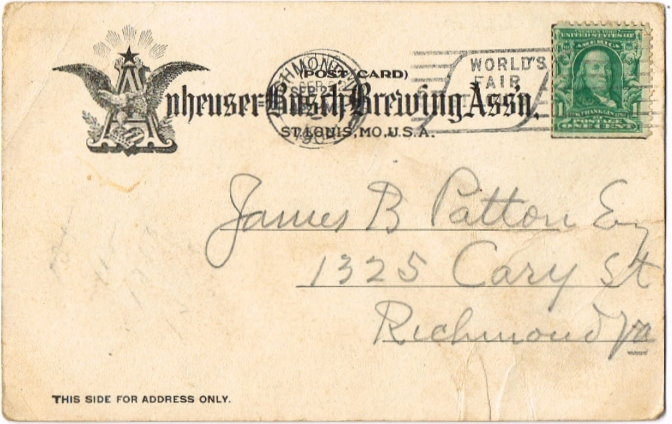 (POST CARD)
Anheuser-Busch Brewing Ass'n.
ST. LOUIS, MO., U.S.A.
RICHMOND, VA.
SEP
WORLD'S
FAIR
UNITED STATES OF
AMERICA
FRANKLIN
POSTAGE
ONE CENT
James B Patton Esq
1325 Cary St
Richmond Va
THIS SIDE FOR ADDRESS ONLY.